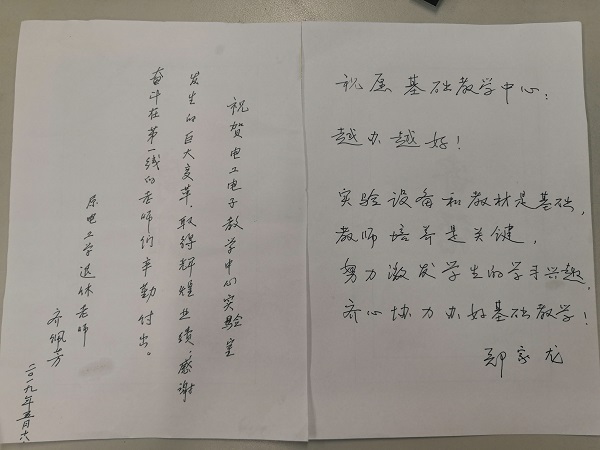 祝贺电工电子教学中心实验室
发生的巨大变革、取得辉煌业绩,感谢
奋斗在第一线的老师们辛勤付出。
原电工学退休老师
齐佩芳
二〇一九年五月六
祝愿基础教学中心:
越办越好!
实验设备和教材是基础,
教师培养是关键,
努力激发学生的学习兴趣,
齐心协力办好基础教学!
郑家龙